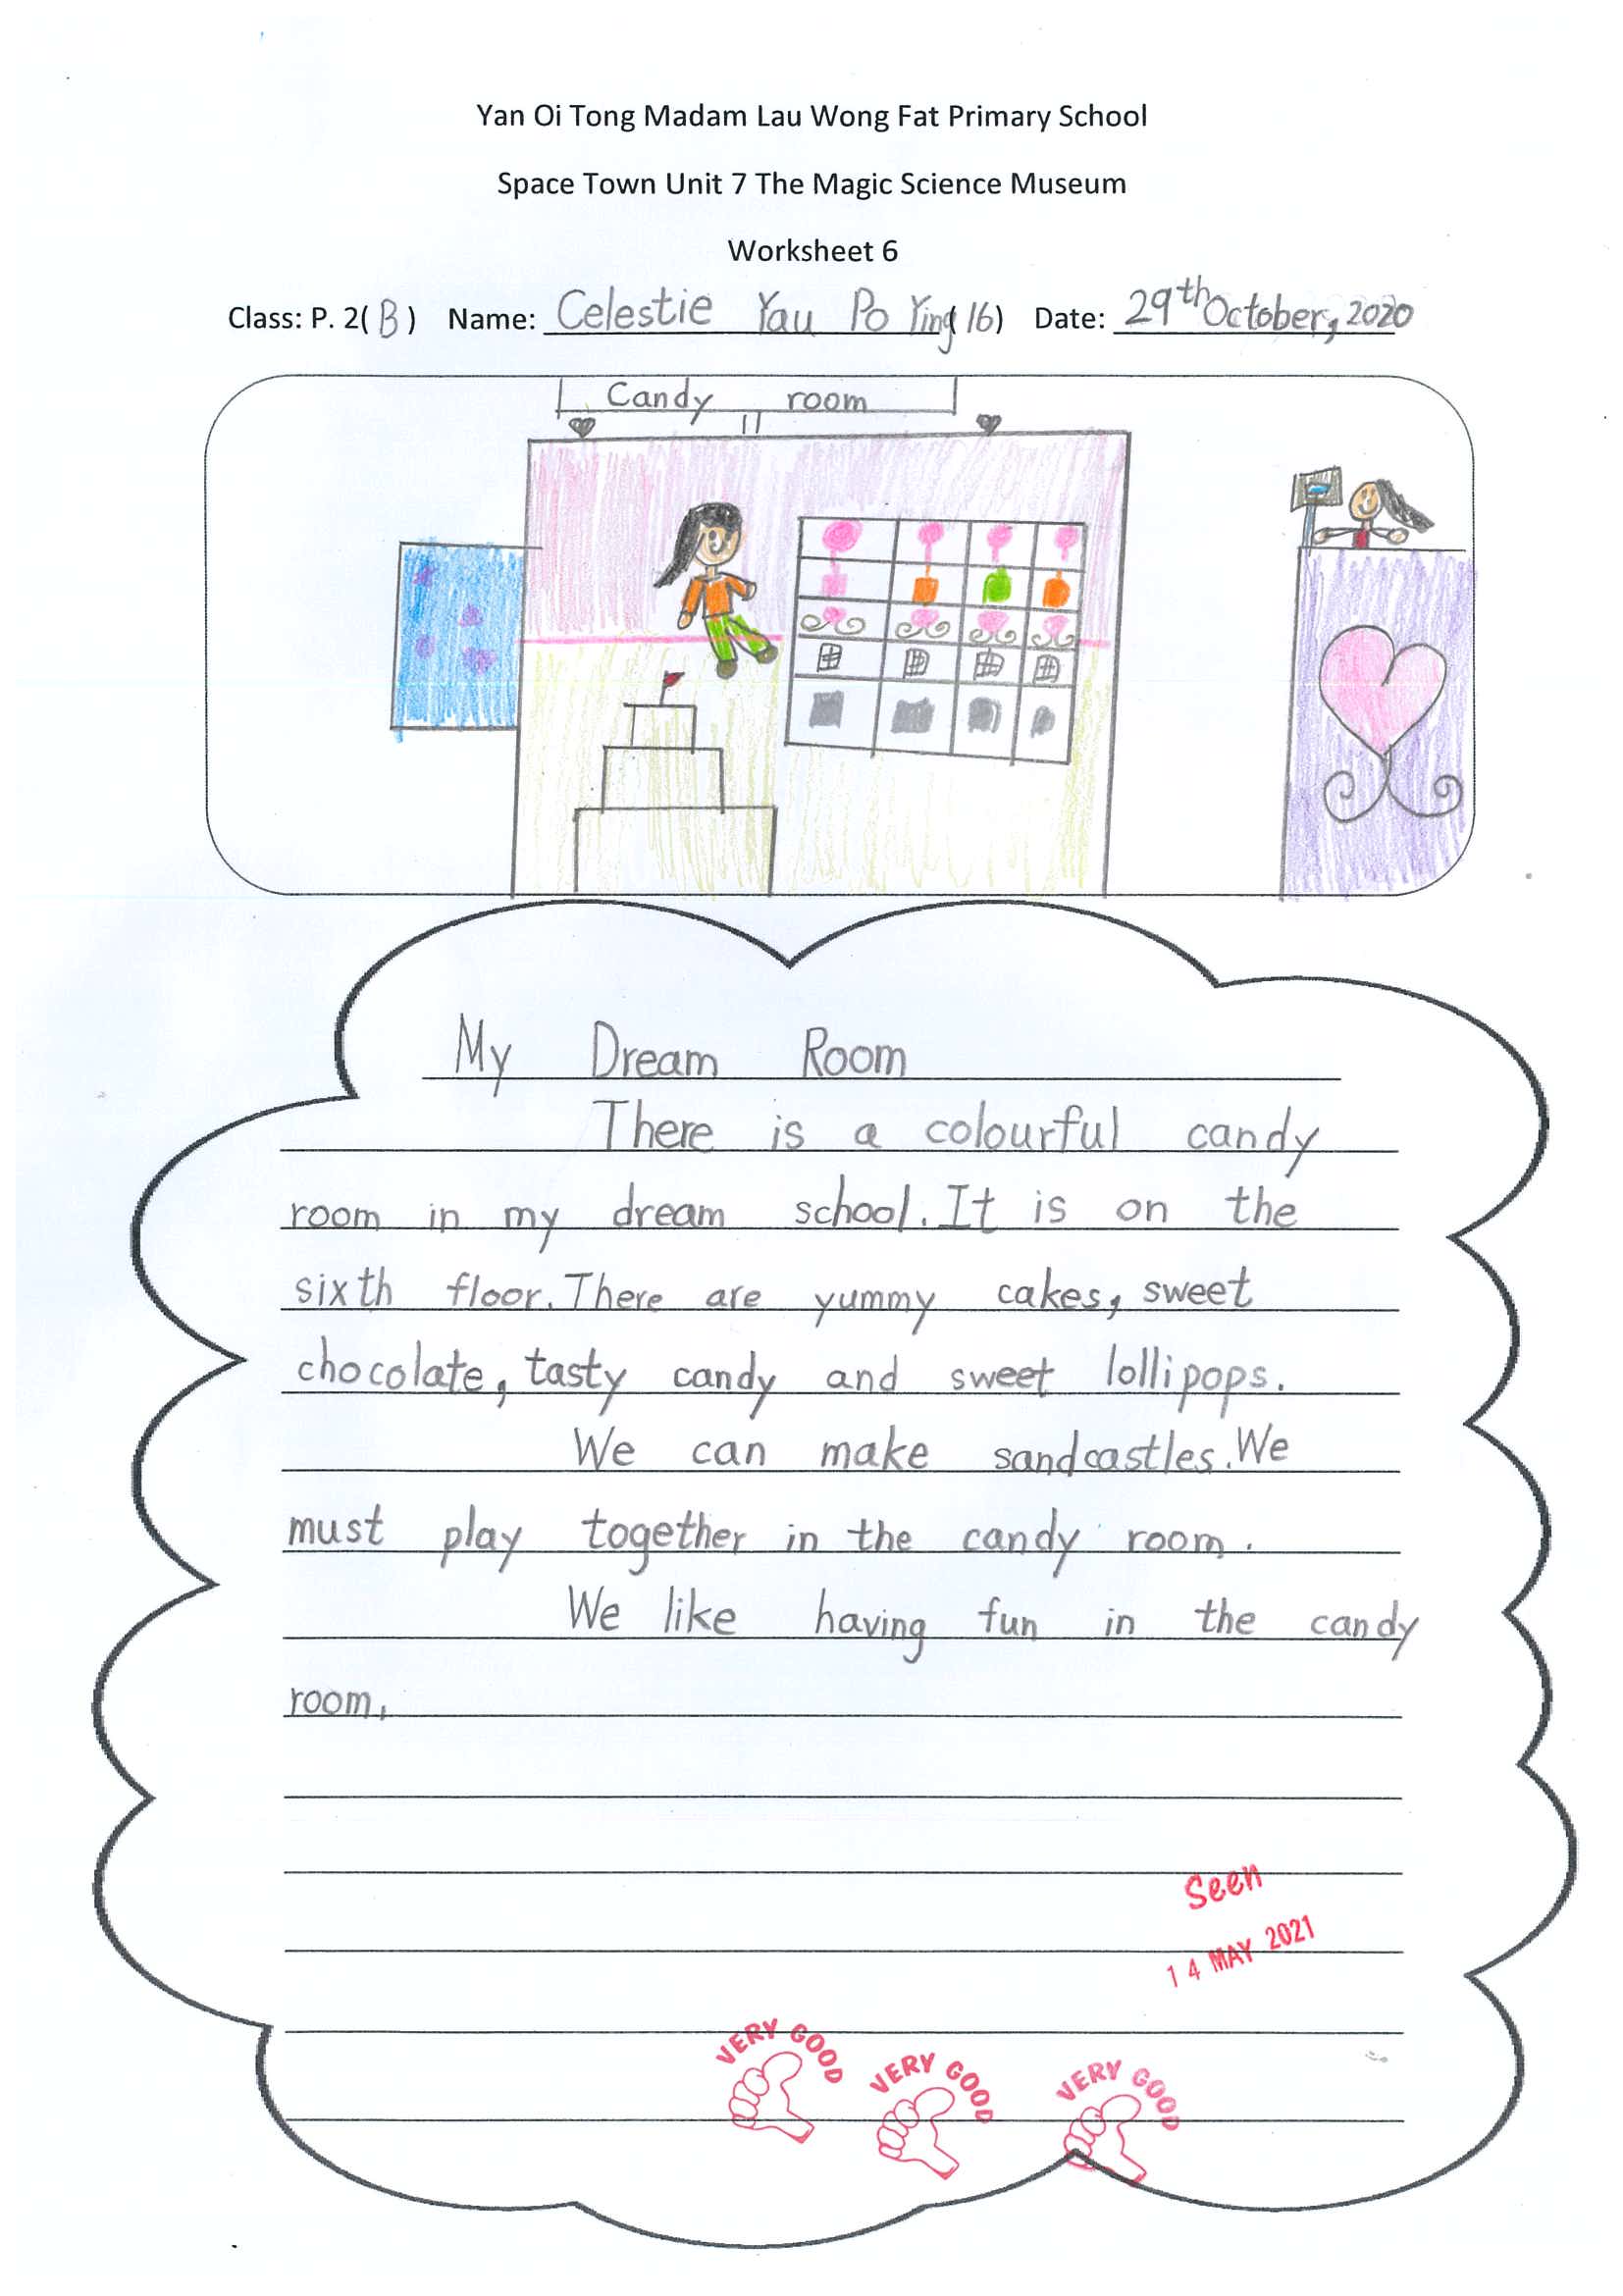 Yan Oi Tong Madam Lau Wong Fat Primary School
Space Town Unit 7 The Magic Science Museum
Worksheet 6
Class: P. 2( B ) Name: Celestie Yau Po Ying( 16 ) Date: 29th October, 2020
Candy room
My Dream Room
There is a colourful candy
room in my dream school. It is on the
sixth floor. There are yummy cakes, sweet
chocolate, tasty candy and sweet lollipops.
We can make sandcastles. We
must play together in the candy room.
We like having fun in the candy
room.
Seen
14 MAY 2021
VERY GOOD
VERY GOOD
VERY GOOD